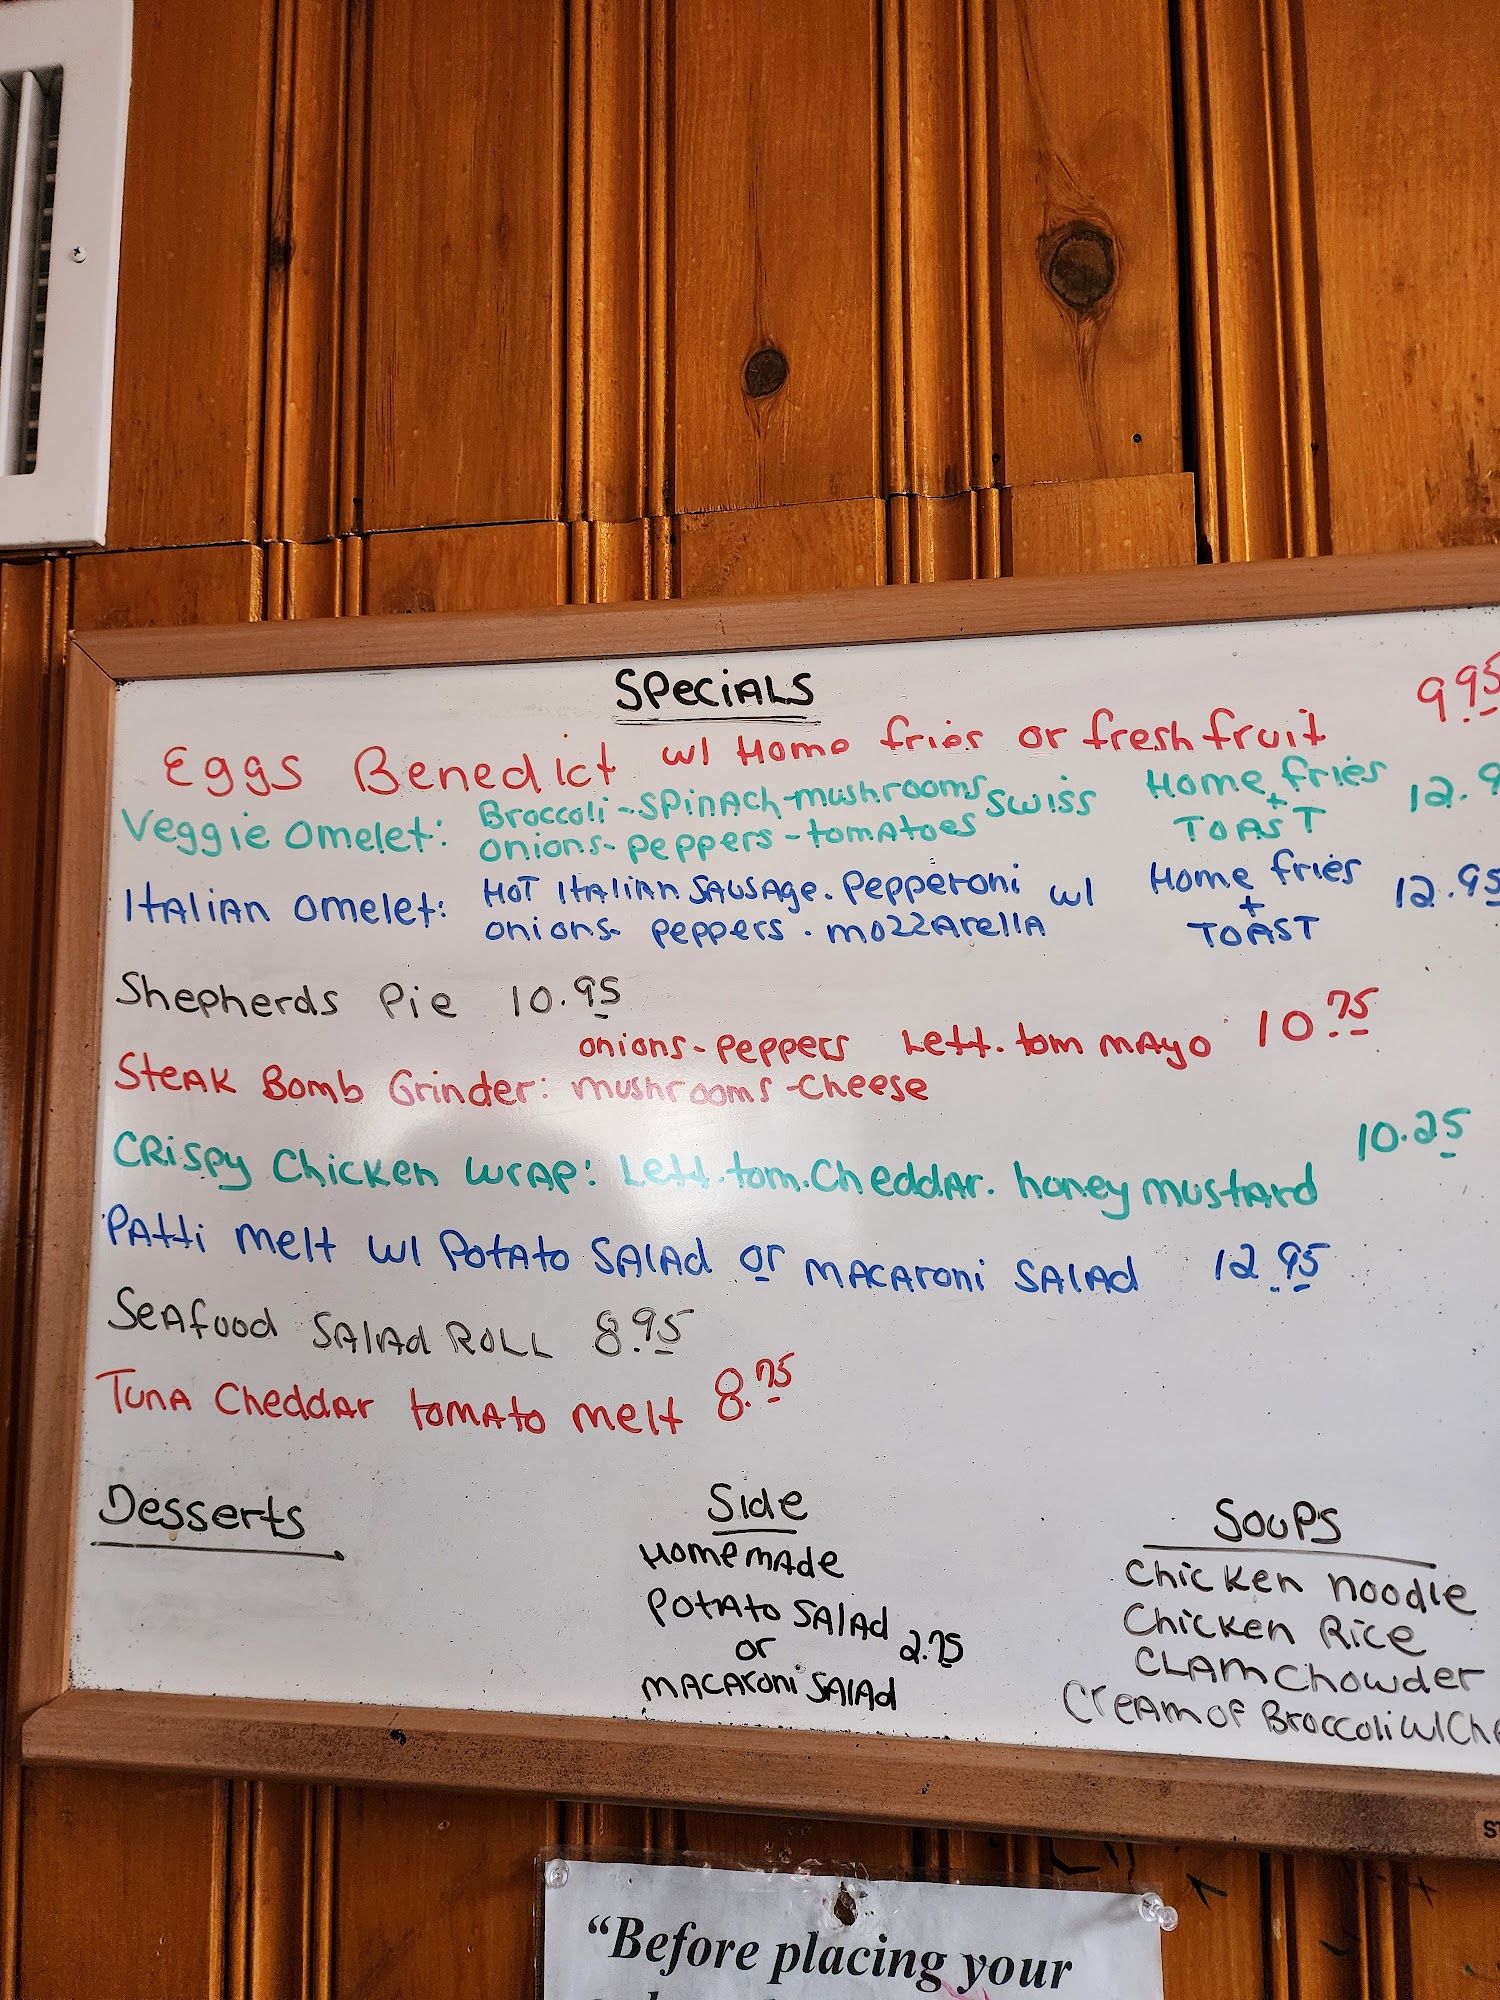 SPECIALS
Eggs Benedict w/ Home fries or fresh fruit 9.95
Veggie omelet: Broccoli-spinach-mushrooms swiss Home fries 12.9
onions-peppers-tomatoes + TOAST
Italian omelet: HOT Italian sausage. Pepperoni w/ Home fries 12.95
onions- peppers. mozzarella + TOAST
Shepherds Pie 10.95
onions-peppers Lett. tom mayo 10.75
Steak Bomb Grinder: mushrooms-cheese
Crispy Chicken wrap: Lett. tom. Cheddar. honey mustard 10.25
Patti melt w/ Potato Salad or macaroni Salad 12.95
Seafood Salad ROLL 8.95
Tuna Cheddar tomato melt 8.75
Desserts
Side
Homemade
Potato Salad
or 2.75
macaroni Salad
Soups
Chicken noodle
Chicken Rice
CLAM Chowder
Cream of Broccoli w/ Che
ST
"Before placing your